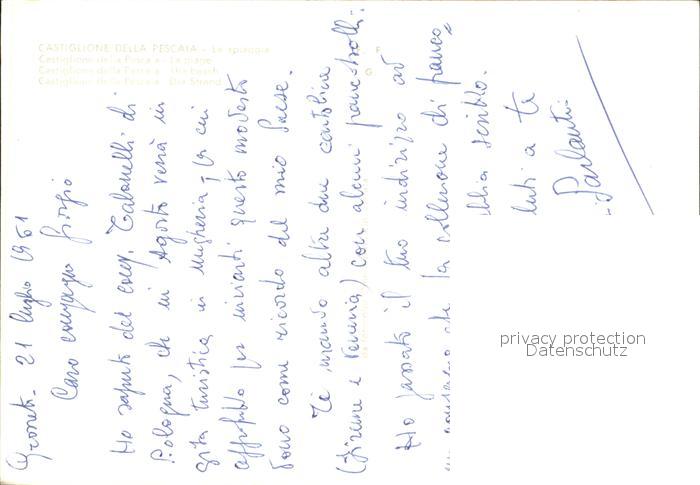 CASTIGLIONE DELLA PESCAIA - La spiaggia
Castiglione della Pescaia - La plage
Castiglione della Pescaia - The beach
Castiglione della Pescaia - Der Strand
Grosseto - 21 luglio 1961
Caro compagno Giorgio
Ho saputo dal comp. Tabanelli di
Bologna, che in Agosto verrà in
gita turistica in Ungheria, per cui
approfitto per inviarti questo modesto
dono come ricordo del mio Paese.
Ti mando altre due cartoline
(Firenze e Venezia) con alcuni francobolli.
Ho passato il tuo indirizzo ad
un compagno che fa collezione di franco
ti scriverà.
Saluti a te
Parlanti
privacy protection
Datenschutz